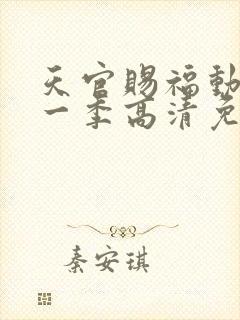 天官赐福動
一季高清免
秦安琪